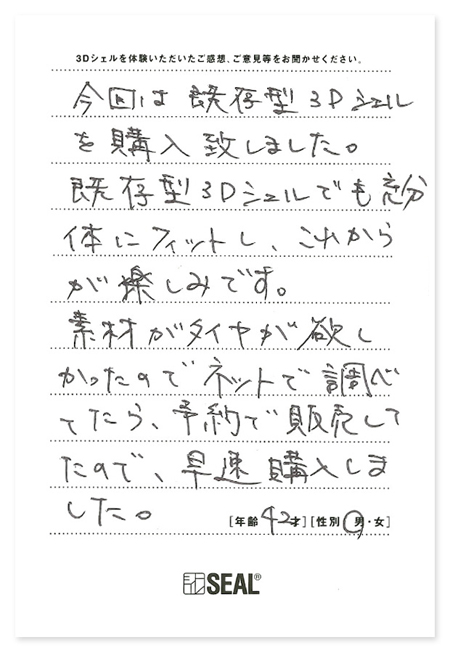 3Dシェルを体験いただいたご感想、ご意見等をお聞かせください。
今回は既存型3Dシェル
を購入致しました。
既存型3Dシェルでも充分
体にフィットし、これから
が楽しみです。
素材がタイヤが欲し
かったのでネットで調べ
てたら、予約で販売して
たので、早速購入しま
した。
[年齢 42才][性別 男・女]
SEAL®